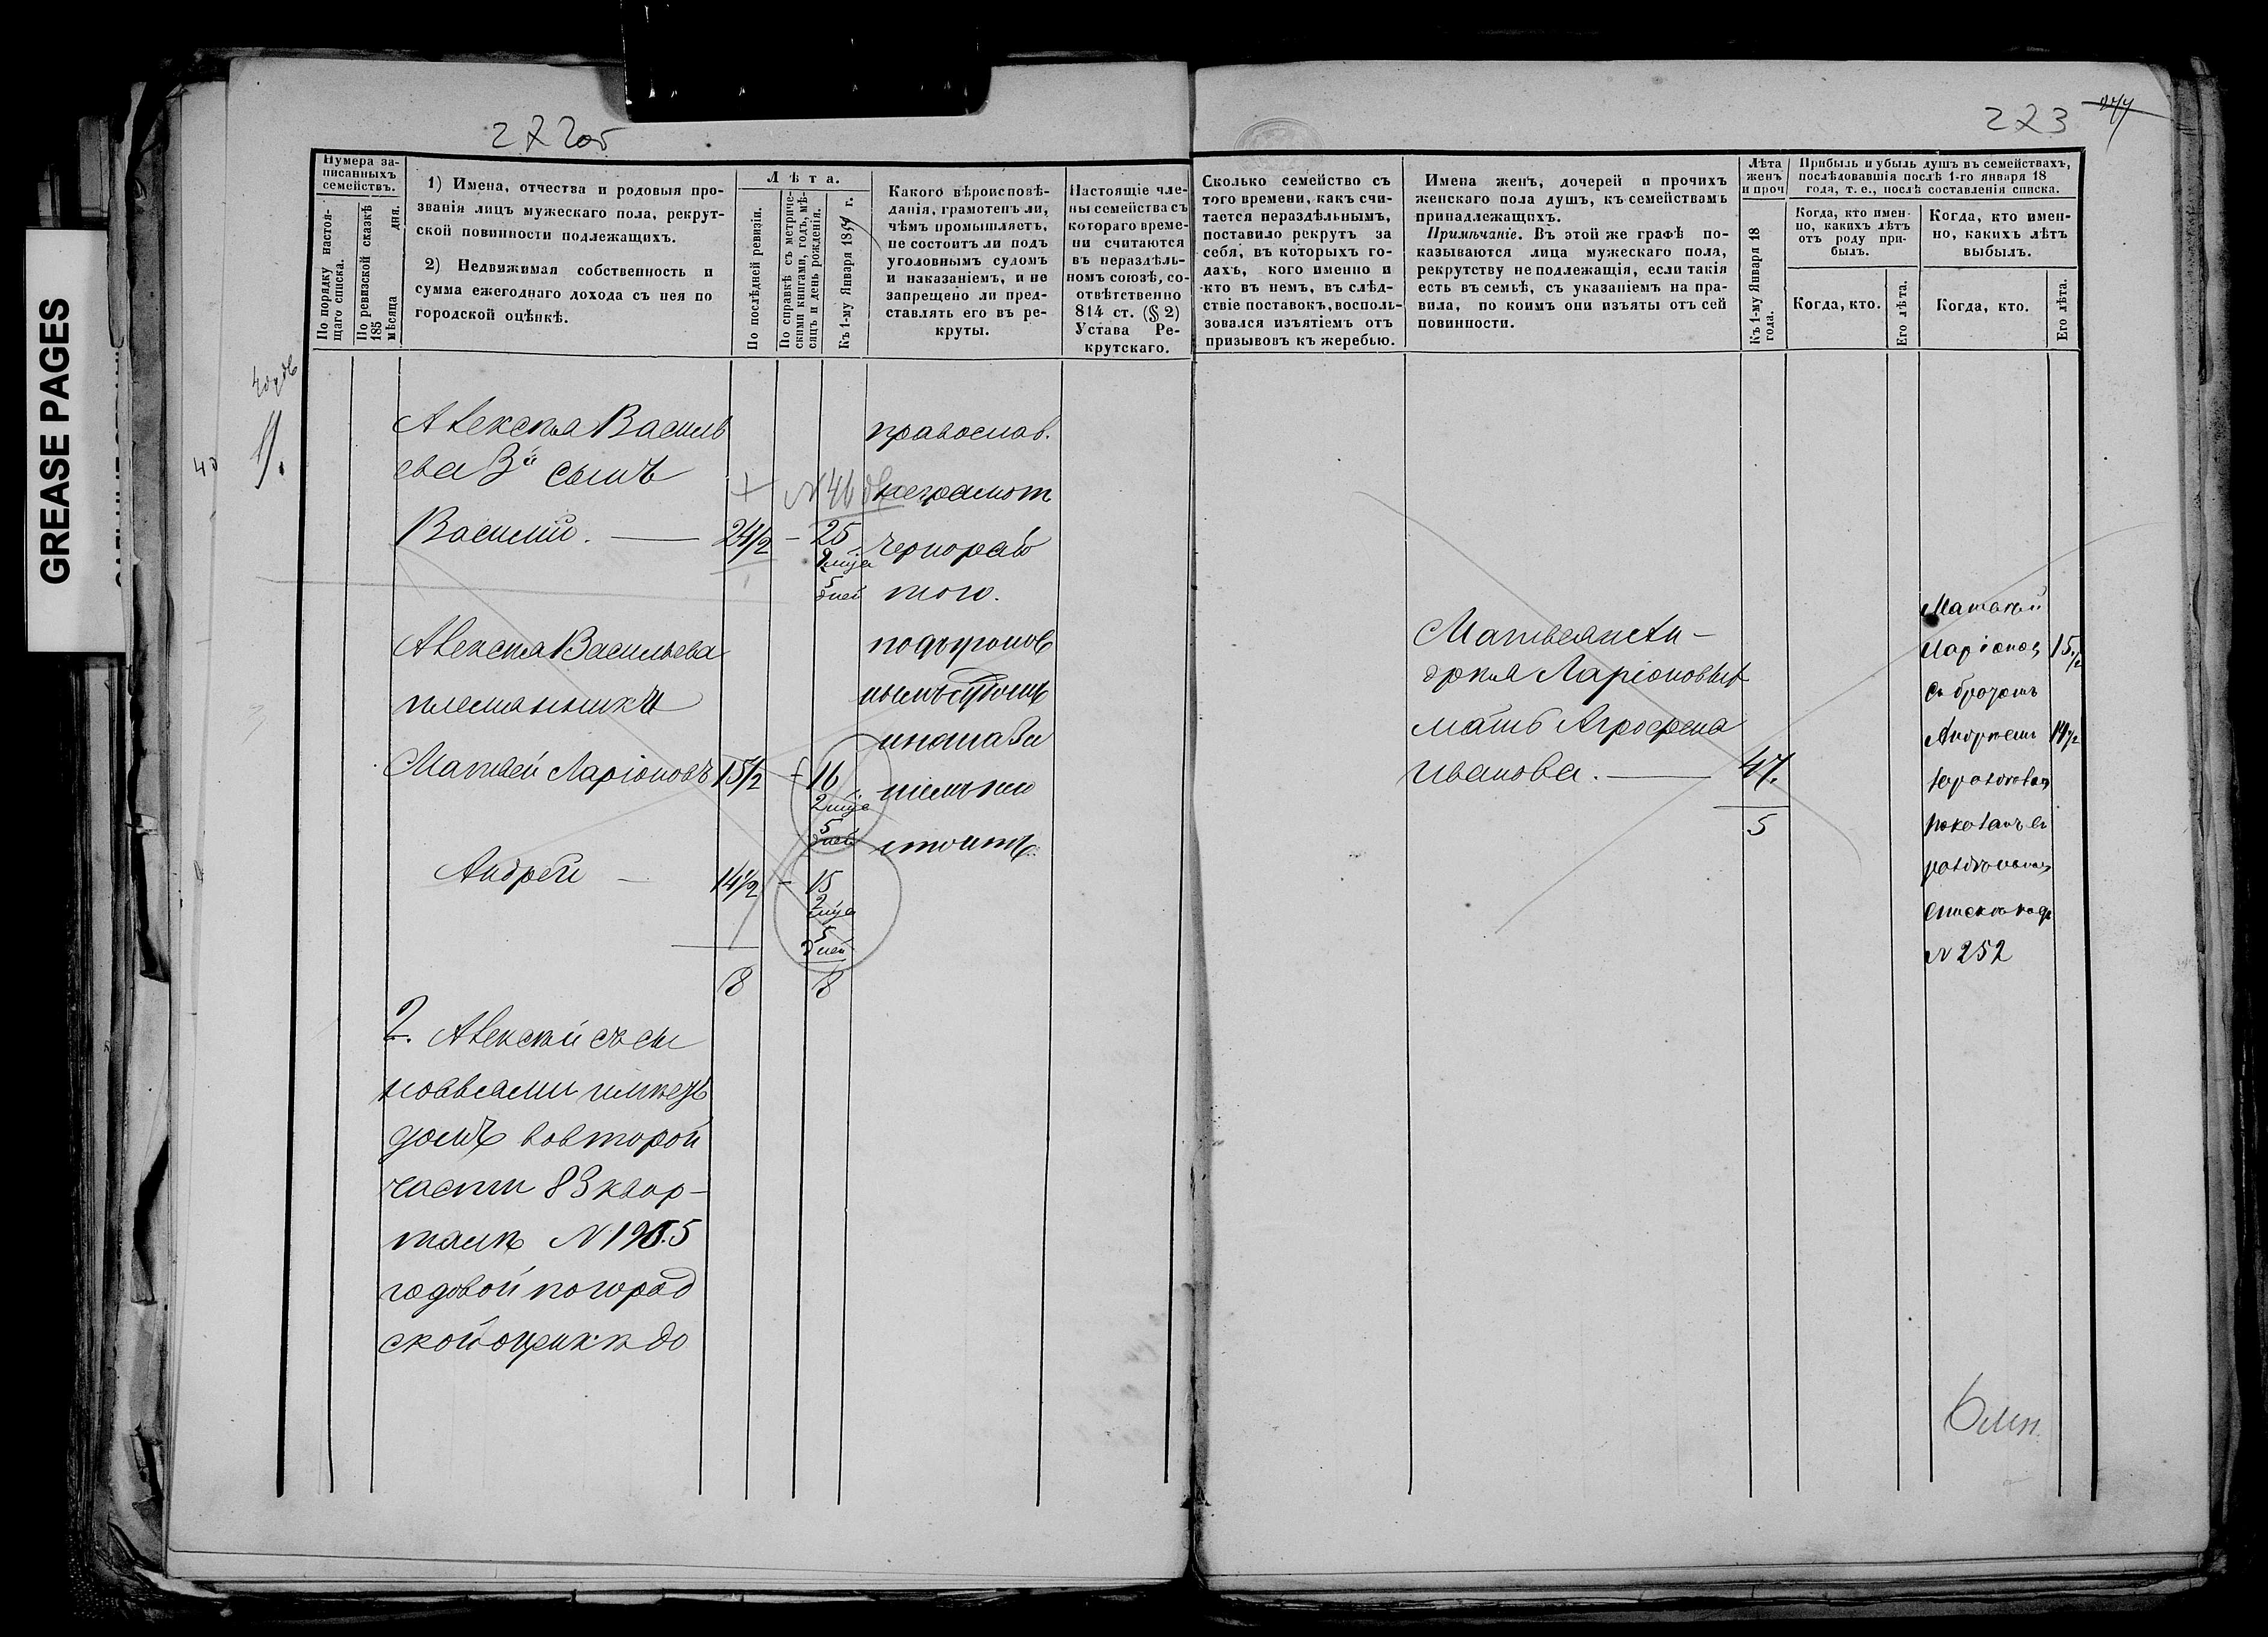 GREASE PAGES
272об
223
Нумера записанныхъ семействъ.
По порядку настоящаго списка.
По ревизской сказкѣ 185 мѣсяца дня.
1) Имена, отчества и родовыя прозванія лицъ мужескаго пола, рекрутской повинности подлежащихъ.
2) Недвижимая собственность и сумма ежегоднаго дохода съ нея по городской оцѣнкѣ.
Лѣта.
По послѣдней ревизіи.
По справкѣ съ метрическими книгами, годъ, мѣсяцъ и день рожденія.
Къ 1-му Января 18 г.
Какого вѣроисповѣданія, грамотенъ ли, чѣмъ промышляетъ, не состоитъ ли подъ уголовнымъ судомъ и наказаніемъ, и не запрещено ли представлять его въ рекруты.
Настоящіе члены семейства съ котораго времени считаются въ нераздѣльномъ союзѣ, соотвѣтственно 814 ст. (§ 2) Устава Рекрутскаго.
Сколько семейство съ того времени, какъ считается нераздѣльнымъ, поставило рекрутъ за себя, въ которыхъ годахъ, кого именно и кто въ немъ, въ слѣдствіе поставокъ, воспользовался изъятіемъ отъ призывовъ къ жеребью.
Имена женъ, дочерей и прочихъ женскаго пола душъ, къ семействамъ принадлежащихъ.
Примѣчаніе. Въ этой же графѣ показываются лица мужескаго пола, рекрутству не подлежащія, если такія есть въ семьѣ, съ указаніемъ на правила, по коимъ они изъяты отъ сей повинности.
Лѣта женъ и проч
Къ 1-му Января 18 года.
Прибыль и убыль душъ въ семействахъ, послѣдовавшія послѣ 1-го января 18 года, т. е., послѣ составленія списка.
Когда, кто именно, какихъ лѣтъ отъ роду прибылъ.
Когда, кто именно, какихъ лѣтъ выбылъ.
Когда, кто.
Его лѣта.
Когда, кто.
Его лѣта.
40
Алексѣя Василь
ева 3й сынъ
Василій. — 24½ — 25
2 мца
5 дней
православ.
N 46
неграмот
чернораб
того.
Алексѣя Васильева
племянники
Матвѣй Ларіоновъ 15½ — 16
2 мца
5 дней
Андрей — 14½ — 15
2 мца
5 дней
8 8
стоитъ
2. Алексѣй съ сы
новьями имѣетъ
домъ во второй
части 83 квар-
талѣ
годовой по город
ской оцѣнкѣ до
Матвѣя и Ан-
дрея Ларіоновыхъ
мать Агрофена
Иванова. — 47.
5
Матвѣй
Ларіонов 15½
съ братомъ
Андреемъ 14½
N 252